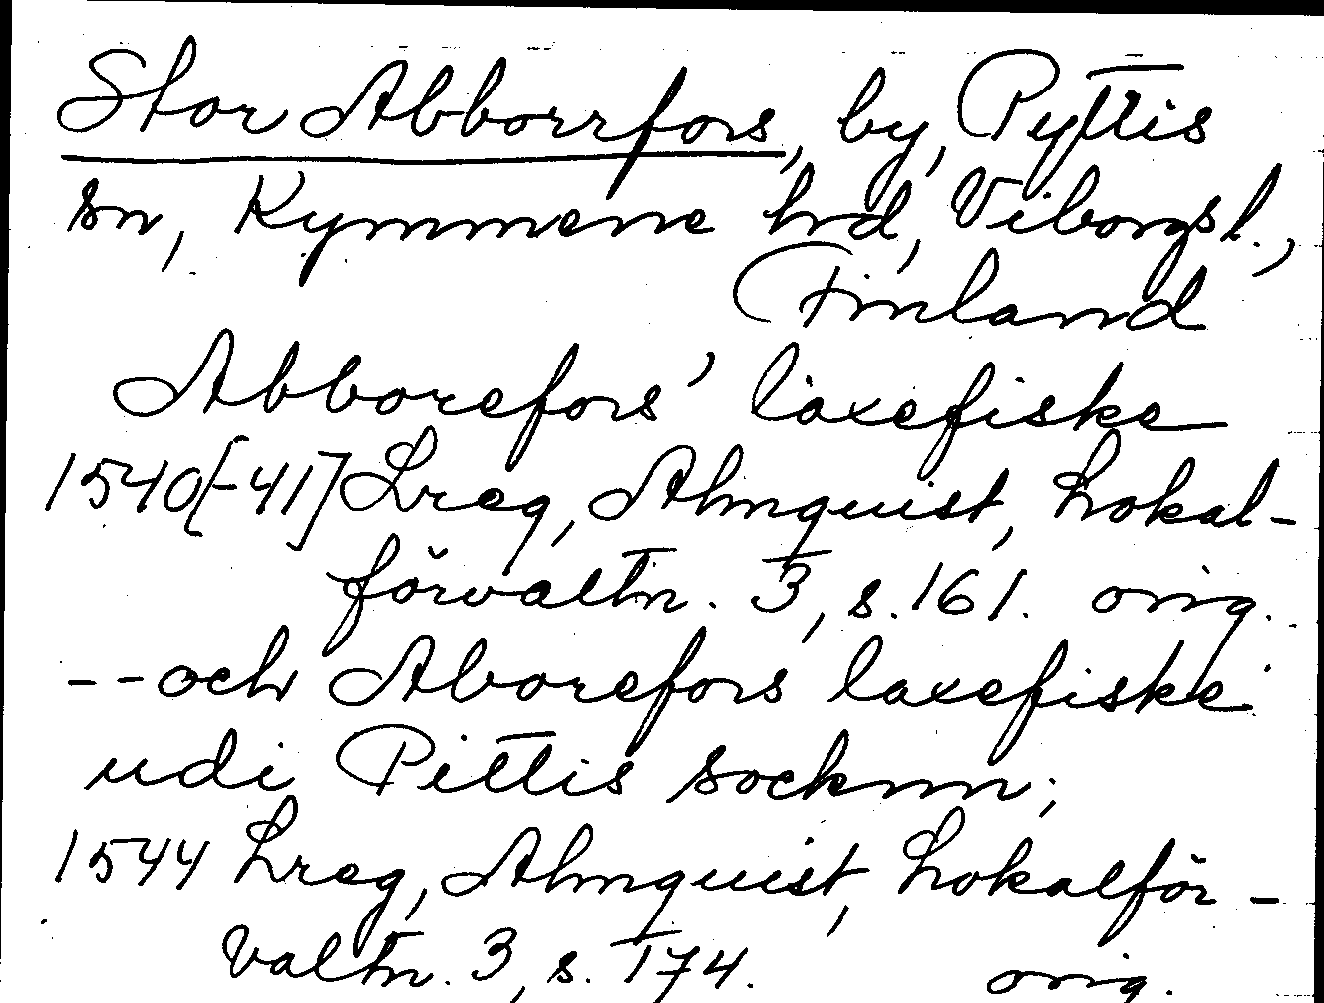 Stor Abborrfors, by, Pyttis
sn, Kymmene hrd, Viborgs l.,
Finland
Abborefors' laxefiske
1540[-41] Lreg, Almquist, Lokal-
förvaltn. 3, s. 161. orig.
-- och Aborefors laxefiske
udi Pittis socknn;
1544 Lreg, Almquist, Lokalför-
valtn. 3, s. 174. orig.